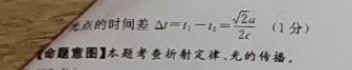 光点的时间差 Δt=t₁-t₂=√2a/2c (1分)
【命题意图】本题考查折射定律、光的传播。